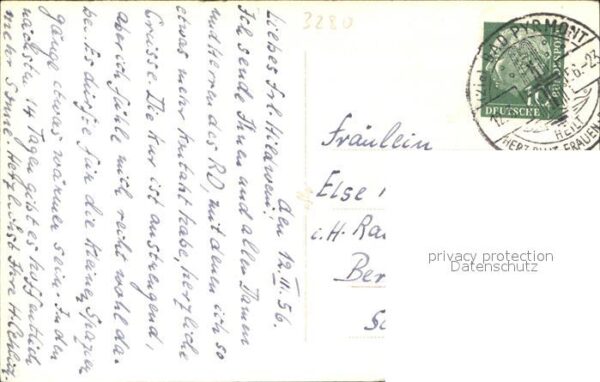 3280
den 12. III. 56.
Liebes Frl. Hildwein!
Ich sende Ihnen und allen Damen
und Herren des RO, mit denen ich so
etwas mehr Kontakt habe, herzliche
Grüsse. Die Kur ist anstrengend,
aber ich fühle mich recht wohl da-
bei. Es dürfte für die kleinen Spazier-
gänge etwas wärmer sein. In den
nächsten 14 Tagen gibt es hoffentlich
mehr Sonne. Herzlichst Ihre H.
BAD PYRMONT
HEILT
HERZ BLUT FRAUEN
10
DEUTSCHE
Fräulein
Else
i. H.
Ber
privacy protection
Datenschutz